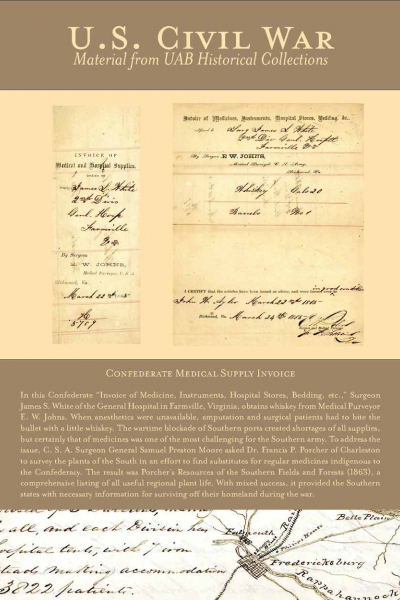 U.S. Civil War
Material from UAB Historical Collections
INVOICE OF
Medical and Hospital Supplies.
James S. White
2nd Divis
Genl. Hosp
Farmville
Va
By Surgeon
E. W. JOHNS,
Medical Purveyor, C. S. A.
Richmond, Va.
March 22
5709
Invoice of Medicines, Instruments, Hospital Stores, Bedding, &c.,
Surg James S. White
2nd Div Genl. Hospt
Farmville Va
By Surgeon E. W. JOHNS,
Richmond, Va.
Whiskey Gals 20
No 1
I CERTIFY that the articles have been issued as above, and were
in good condition
March 22nd
Richmond, Va. March 24th
CONFEDERATE MEDICAL SUPPLY INVOICE
In this Confederate "Invoice of Medicine, Instruments, Hospital Stores, Bedding, etc.," Surgeon
James S. White of the General Hospital in Farmville, Virginia, obtains whiskey from Medical Purveyor
E. W. Johns. When anesthetics were unavailable, amputation and surgical patients had to bite the
bullet with a little whiskey. The wartime blockade of Southern ports created shortages of all supplies,
but certainly that of medicines was one of the most challenging for the Southern army. To address the
issue, C. S. A. Surgeon General Samuel Preston Moore asked Dr. Francis P. Porcher of Charleston
to survey the plants of the South in an effort to find substitutes for regular medicines indigenous to
the Confederacy. The result was Porcher's Resources of the Southern Fields and Forests (1863), a
comprehensive listing of all useful regional plant life. With mixed success, it provided the Southern
states with necessary information for surviving off their homeland during the war.
all, and each Division has
hospital tents, with 7 iron
making accommodation
3822 patients.
Falmouth
Belle Plain
Fredericksburg
Rappahannock